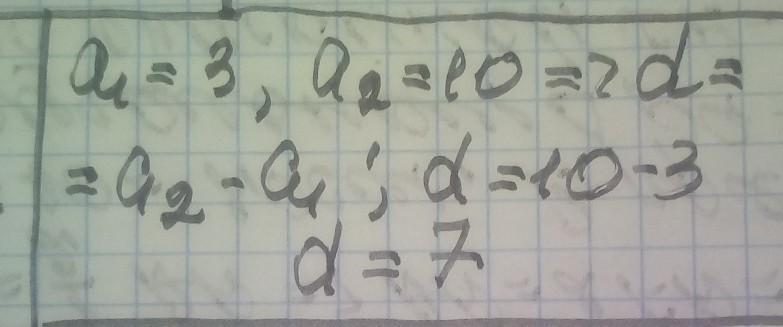 a₁ = 3, a₂ = 10 => d =
= a₂ - a₁; d = 10 - 3
d = 7